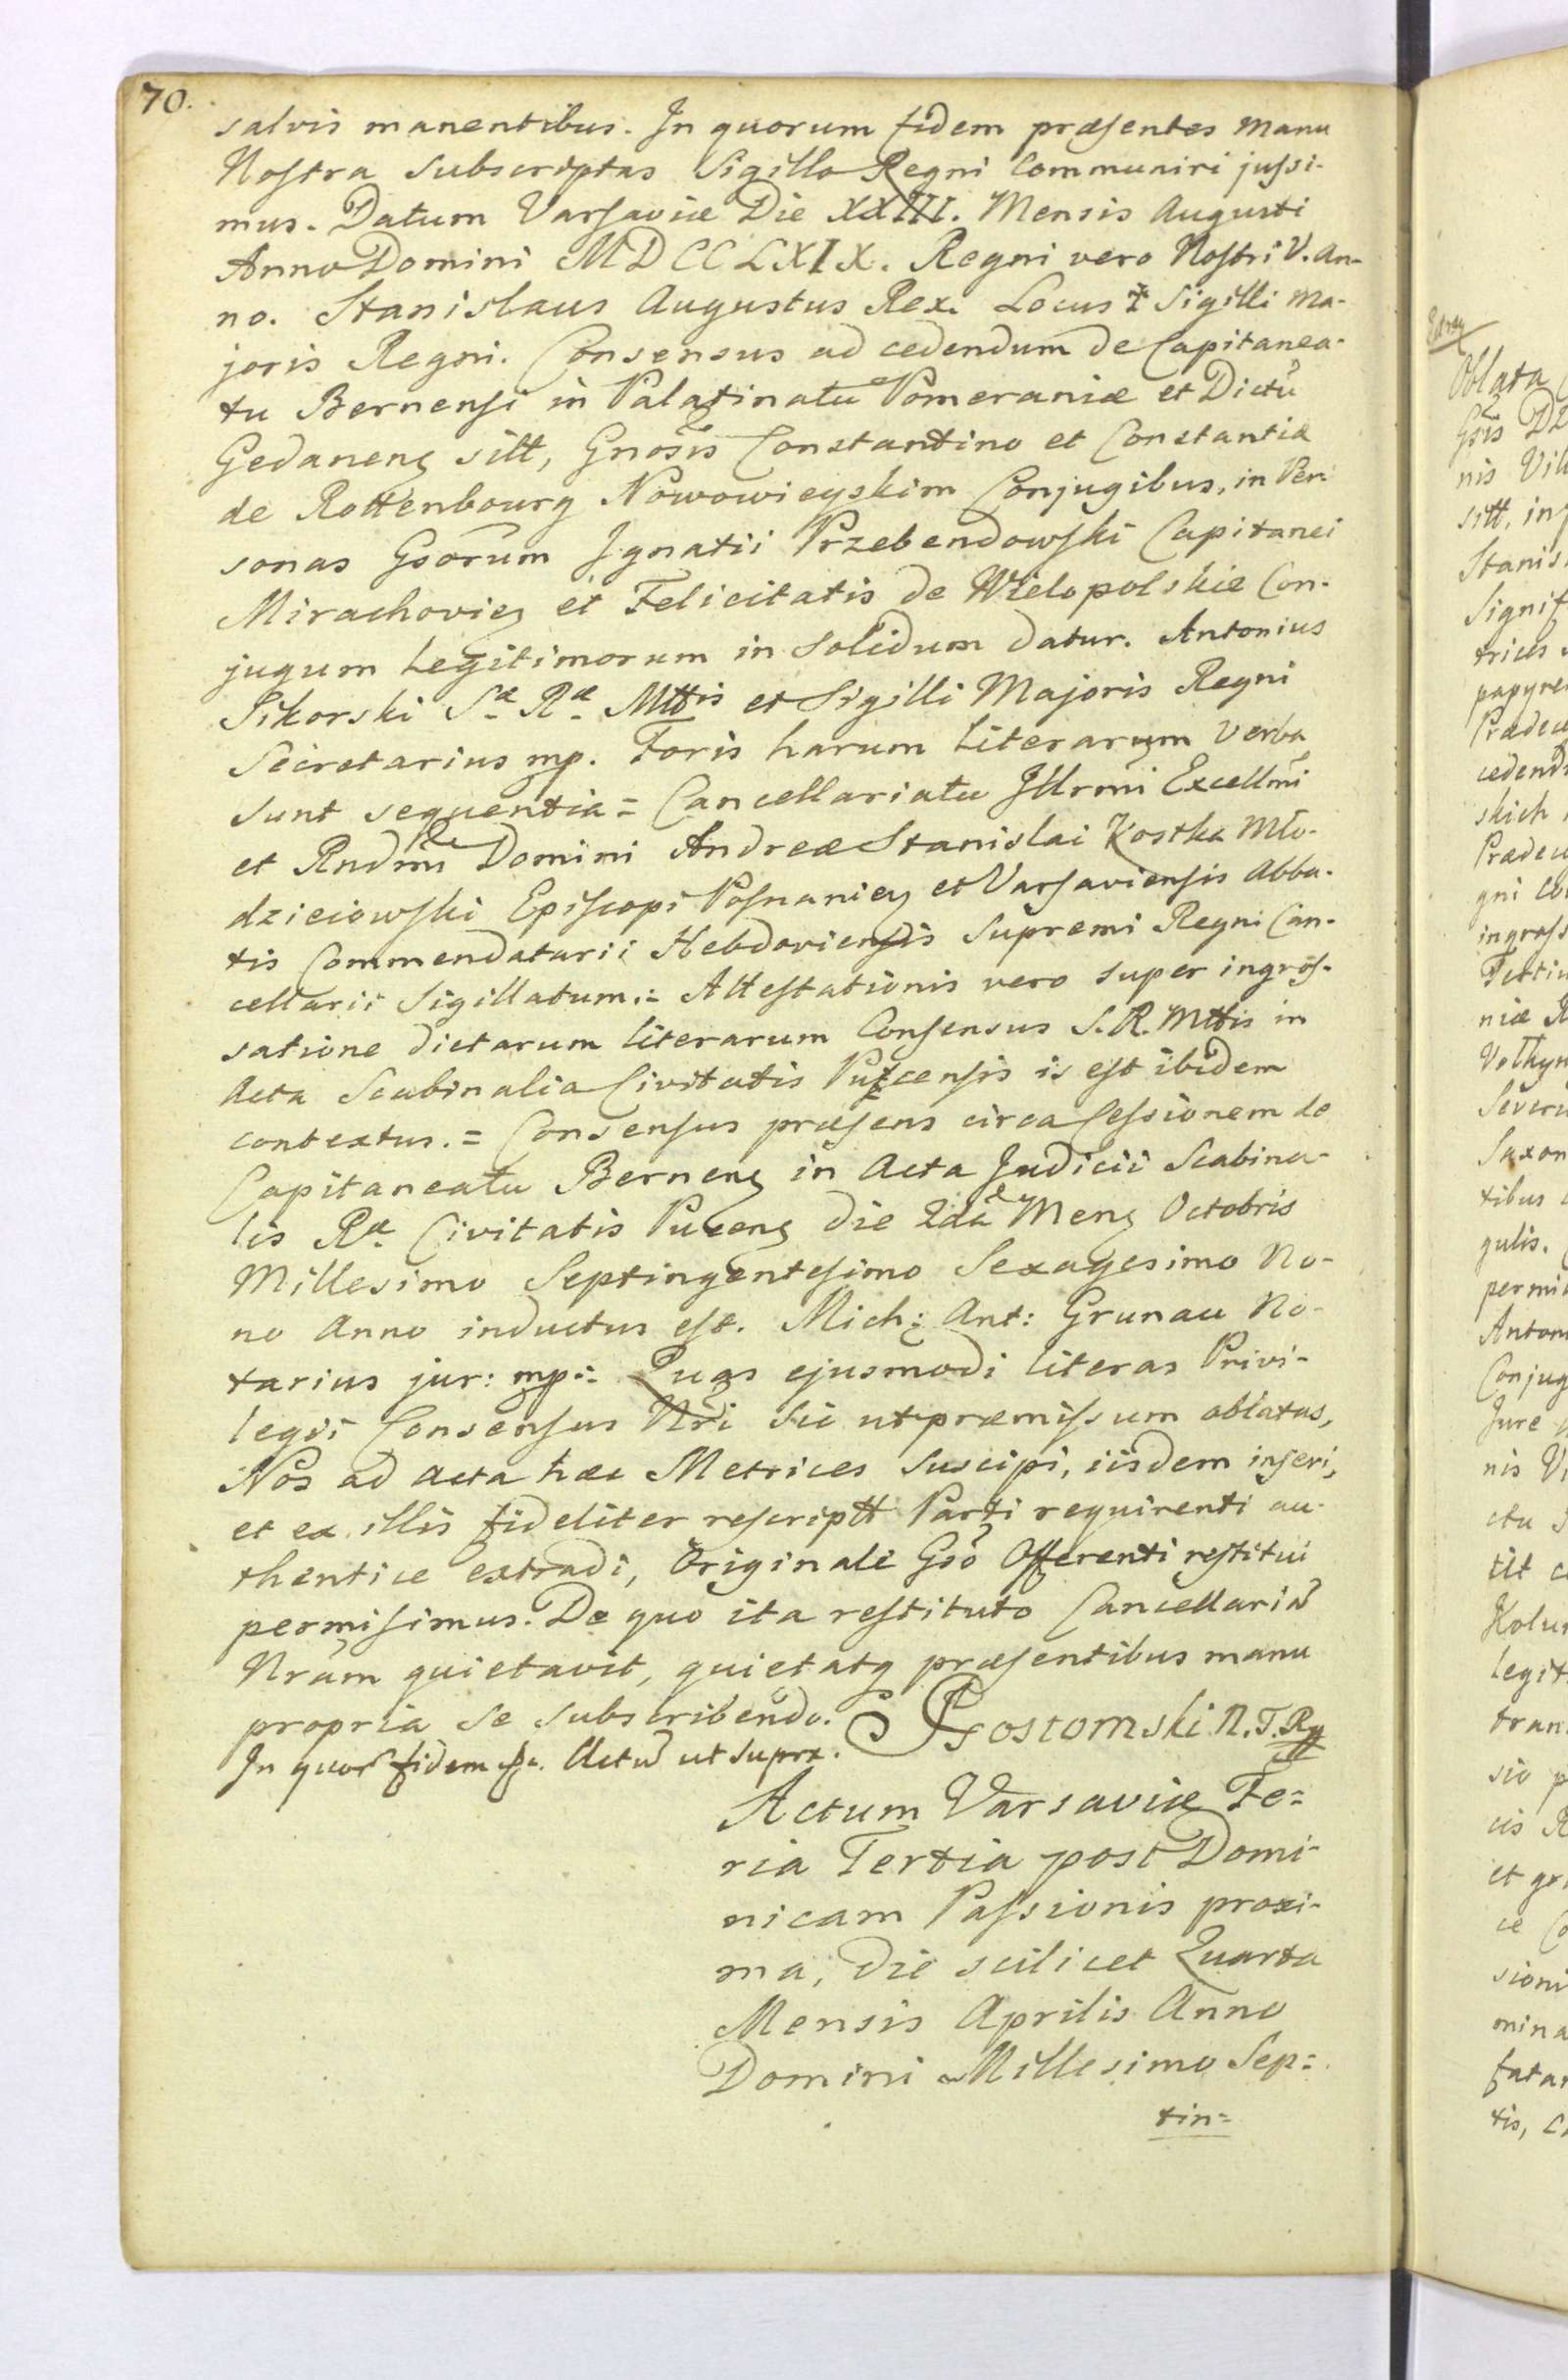 70.
salvis manentibus. In quorum fidem præsentes manu
Nostra subscriptas Sigillo Regni Communiri jussi-
mus. Datum Varsaviæ Die XXIII. Mensis Augusti
Anno Domini MDCCLXIX. Regni vero Nostri V. An-
no. Stanislaus Augustus Rex. Locus ‡ Sigilli Ma-
joris Regni. Consensus ad cedendum de Capitanea-
tu Bernensi in Palatinatu Pomeraniæ et Dictũ
Gedaneng sitt, Gnosis Constantino et Constantia
de Rottenbourg Nowowieyskim Conjugibus, in Per-
sonas Gsorum Ignatii Przebendowski Capitanei
Mirachovieg et Felicitatis de Wielopolskie Con-
jugum Legitimorum in Solidum datur. Antonius
Sikorski Sæ Ræ Mttis et Sigilli Majoris Regni
Secretarius mp. Foris harum Literarum verba
sunt sequentia = Cancellariatu Illrmi Excellmi
et Rndmi Domini Andreæ Stanislai Kostka Mło-
dzieiowski Episcopi Posnanieg et Varsaviensis Abba-
tis Commendatarii Hebdoviensis Supremi Regni Can-
cellarii Sigillatum.= Attestationis vero super ingros-
satione dictarum literarum Consensus S. R. Mttis in
Acta Scabinalia Civitatis Puccensis is est ibidem
contextus. = Consensus præsens circa Cessionem de
Capitaneatu Berneng in Acta Judicii Scabina-
lis Ræ Civitatis Puceng die 2da Meng Octobris
Millesimo Septingentesimo Sexagesimo No-
no Anno inductus est. Mich: Ant: Grunau No-
tarius jur: mp:= Quas ejusmodi literas Privi-
legii Consensus Nri sic ut præmissum oblatas,
Nos ad acta hæc Metrices suscipi, iisdem inseri,
et ex illis fideliter rescriptt Parti requirenti au-
thentice extradi, Originale Gso Offerenti restitui
permisimus. De quo ita restituto Cancellariã
Nram quietavit, quietatq præsentibus manu
propria se subscribendo. Gostomski N. T. Rg
In quor fidem p. Actũ ut supra.
Actum Varsaviæ Fe=
ria Tertia post Domi-
nicam Passionis proxi-
ma, die scilicet Quarta
Mensis Aprilis Anno
Domini Millesimo Sep=
tin=
Oblata
Gsis
nis
sitt, in
Stanis
Signif
trices
papyre
Prædec
cedend
skich
Prædec
gni
ingross
niæ
Volhyn
Severi
Saxon
tibus
gulis.
permi
Anton
Conjug
Jure
nis
ctu
tit
Kolu
legit
tran
sio p
cis
et gr
ce
sioni
mina
fatar
tis,